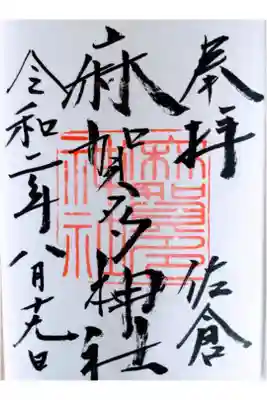 奉拝 佐倉
麻賀多神社
令和二年八月十九日